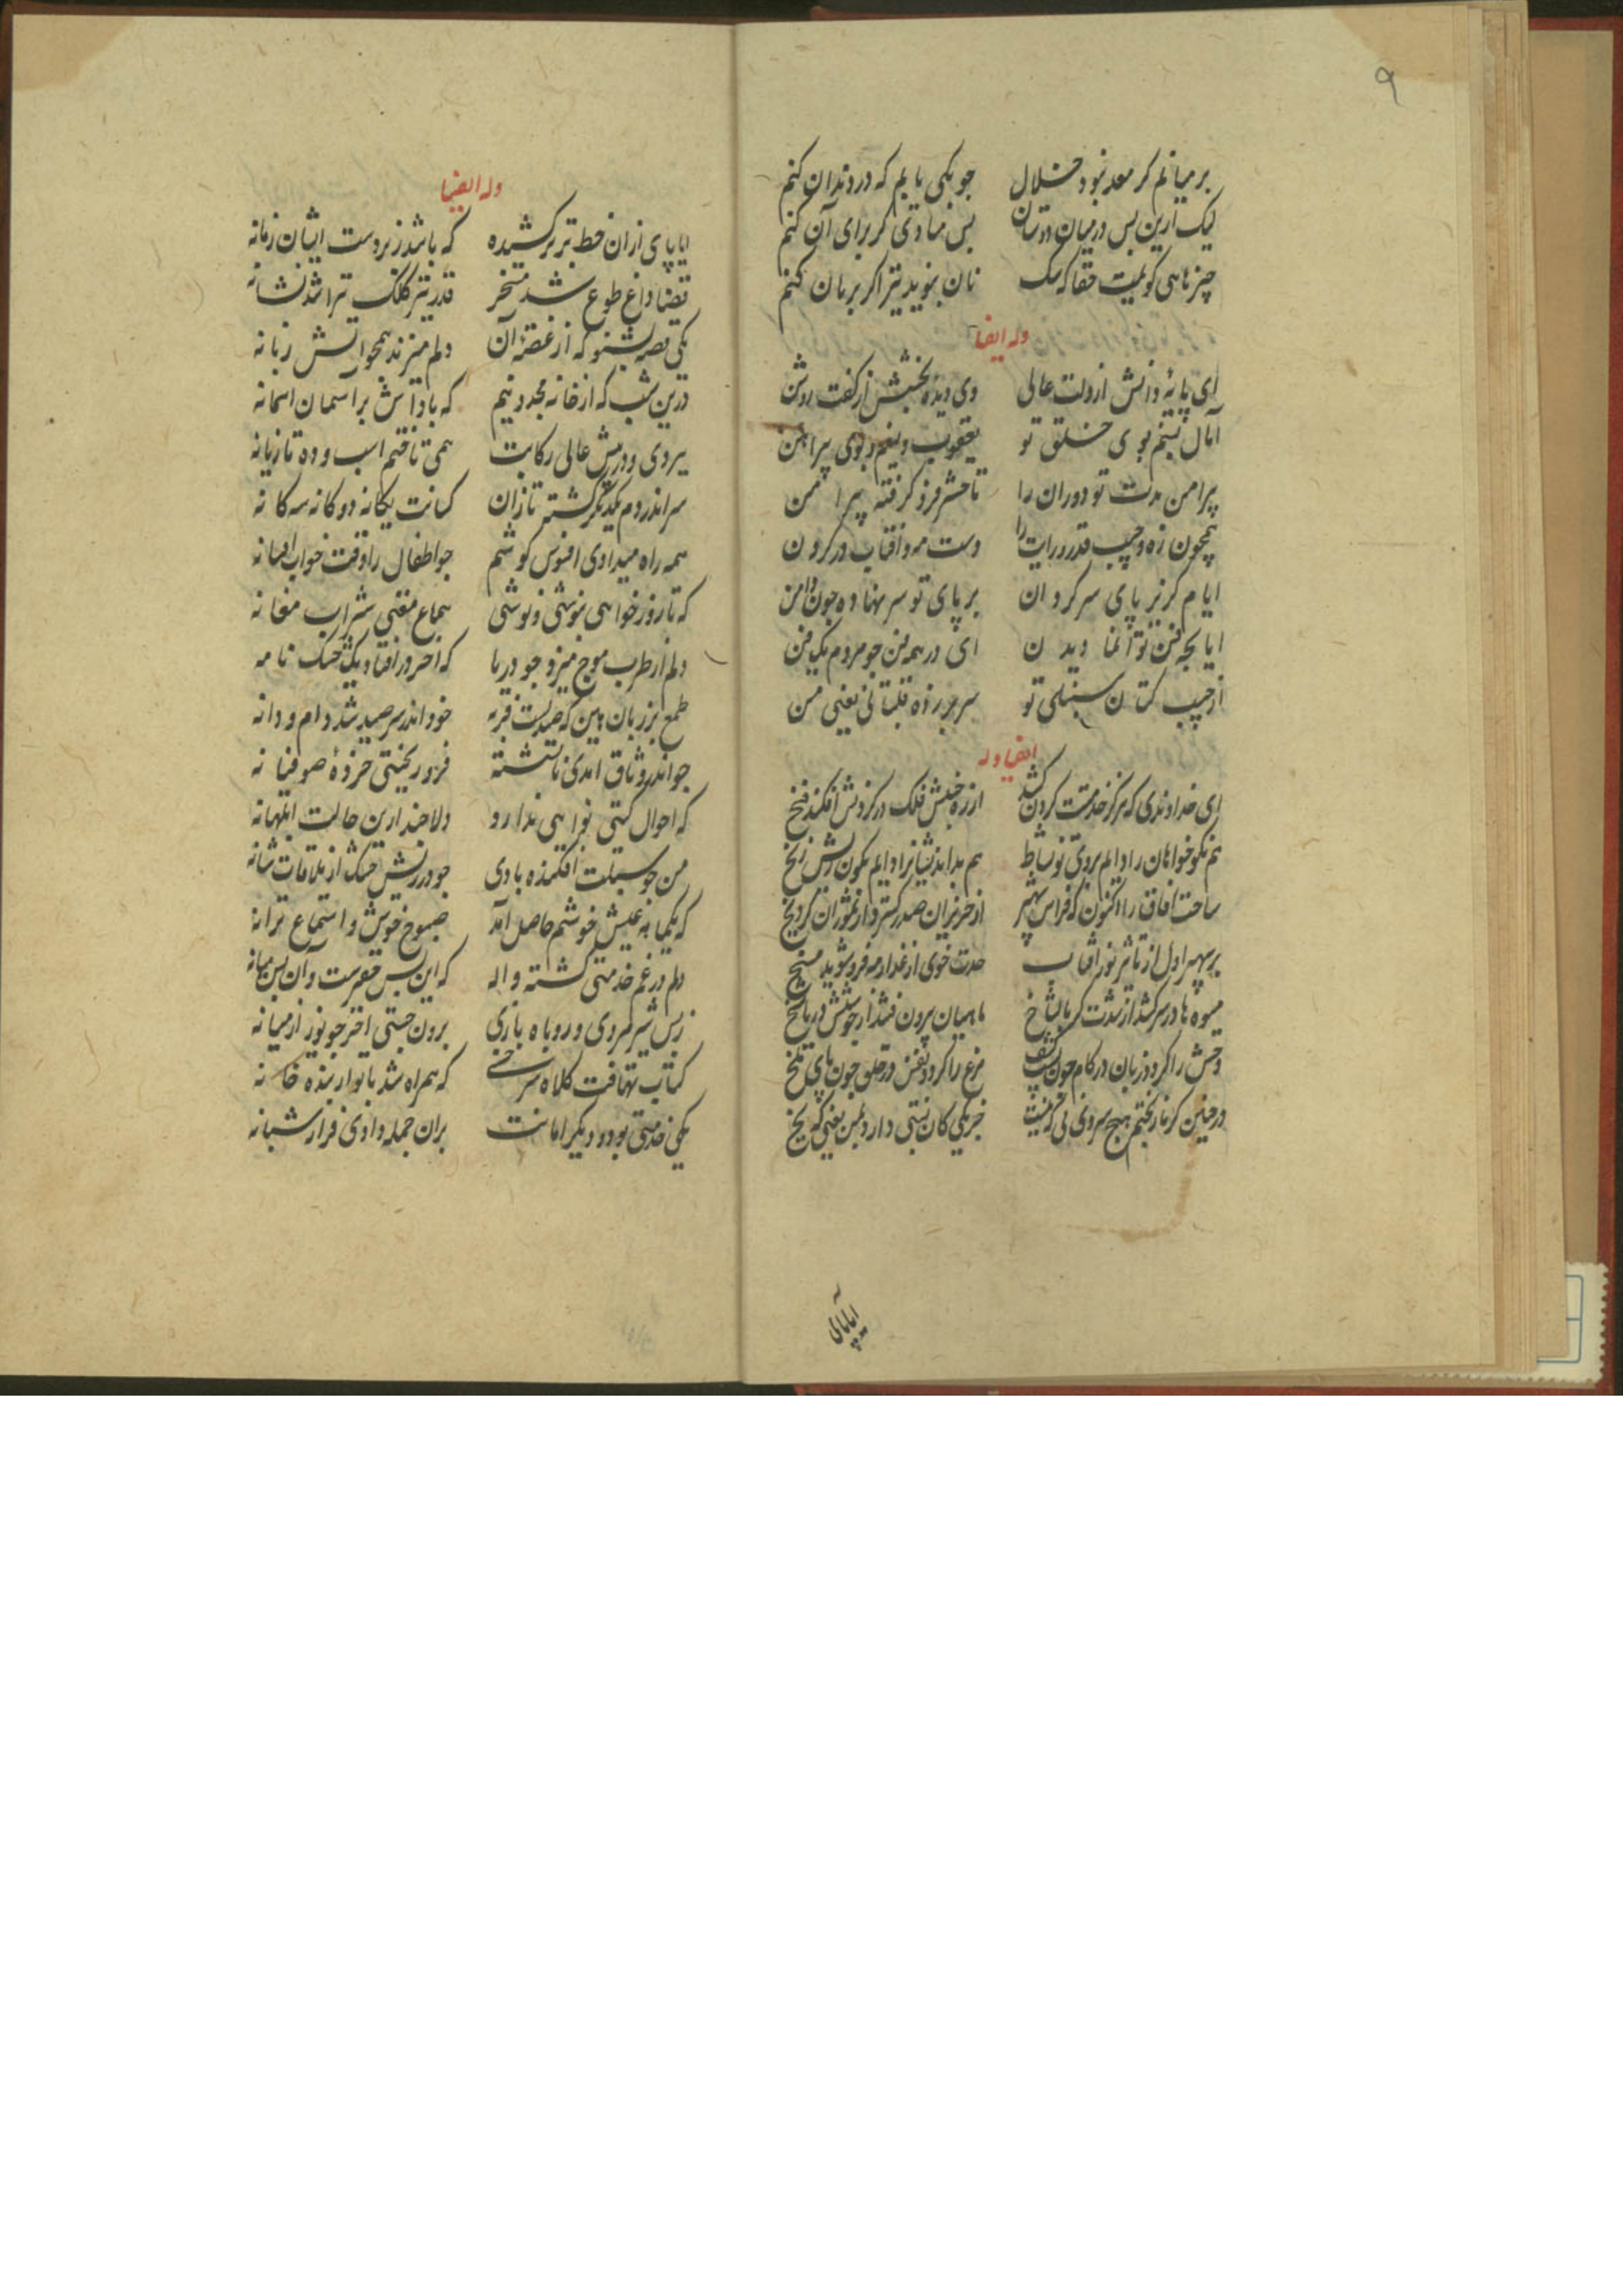 ۹
بر میانم کر معده نبود خلال جو یکی یابم که در دندان کنم
لیک ازین بس در میان دوستان بس مناوی کر برای آن کنم
چیزهایی کو بلمیت حقا که سک نان نبوید نیز اکر بر مان کنم
وله ایضا
ای پایهٔ دانش از دلت عالی وی دیدهٔ بخشش از کفت روشن
آمال نسیم بوی خلق تو یعقوب و نسیم و بوی پیراهن
پیرامن مدت تو دوران را تا حشر فرو کرفته پیرامن
همچون زه و جیب قدر و رایت را دست مه و آفتاب در کردن
ایام کزیر پای سر کردان بر پای تو سر نهاده جون دامن
ایا بجه فن توانما دیدن ای در همه فن جو مردم یک فن
از جیب کتان سنبلی تو سر بر زده قلتبانی یعنی من
ایضا وله
ای خداوندی که هرکز خدمتت کردن کشد از ره جنبش فلک در کردنش افکند فخ
هم نکوخواهان را دایم بروی تو نشاط هم بد اندیشانرا دایم بکون ریش زنخ
ساحت آفاق را اکنون که فراش سپهر از حزیران صدر کسترد از تموزان کرد یخ
بر سپهر اول از تاثیر نور آفتاب حدت خوی از عذار مه فرو شوید
میوه ها در سر کشد از شدت کرما شاخ ماهیان بیرون فتند از جوشش دریا
وحش را کردد زبان در کام چون کشف مرغ را کردد نفس در حلق جون پای ملخ
در چنین کرما ز بختم هیچ سردی نی کزینت جز یکی کان نسبتی دارد بمن یعنی که یخ
ایا پای
وله ایضا
ایا پای از ان خط برتر کشیده که باشد ز بر دست ایشان زمانه
قضا داغ طوع شد مسخر قدر تیر کلک ترا شد نشانه
یکی قصه بشنو که از غصهٔ آن دلم میزند همچو آتش زبانه
درین شب که از خانه مجد دینم که باداش بر آسمان آسمانه
بیروی و درپیش عالی رکابت همی تاختم اسب و ده تازیانه
سر اندر دم یکدیکر کشته تازان کسانت یکانه دو کانه سه کانه
همه راه میدادی افسوس کوشم جو اطفال را وقت خواب افسانه
که تا روز خواهی بنوشی و نوشی سماع مغنی شراب مغانه
دلم از طرب موج میزد جو دریا که آخر در افتاد یک خشک نامه
طمع بر زبان هین که صیدیست فربه خود اندر سر صید شد دام و دانه
جو اندر وثاق آمدی نانشسته فرو ریختی خردهٔ صوفیانه
که احوال کیتی نوایی ندارد دلا چند ازین حالت ابلهانه
من جو سبلت افکنده بادی جو در ریش خشک از ملاقات شانه
که یکمایه عیش خوشم حاصل آمد صبوح خوش و استماع ترانه
دلم در غم خدمتی کشته واله که این بس حقیرست و آن بس میانه
ز بس شیر مردی و روباه بازی برون جستی آخر جو تیر از میانه
کتاب تهافت کلاه سرخسی که همراه شد با تو از بنده خانه
یکی خدمتی بود و دیکر امانت بران جمله دادی قرار شبانه